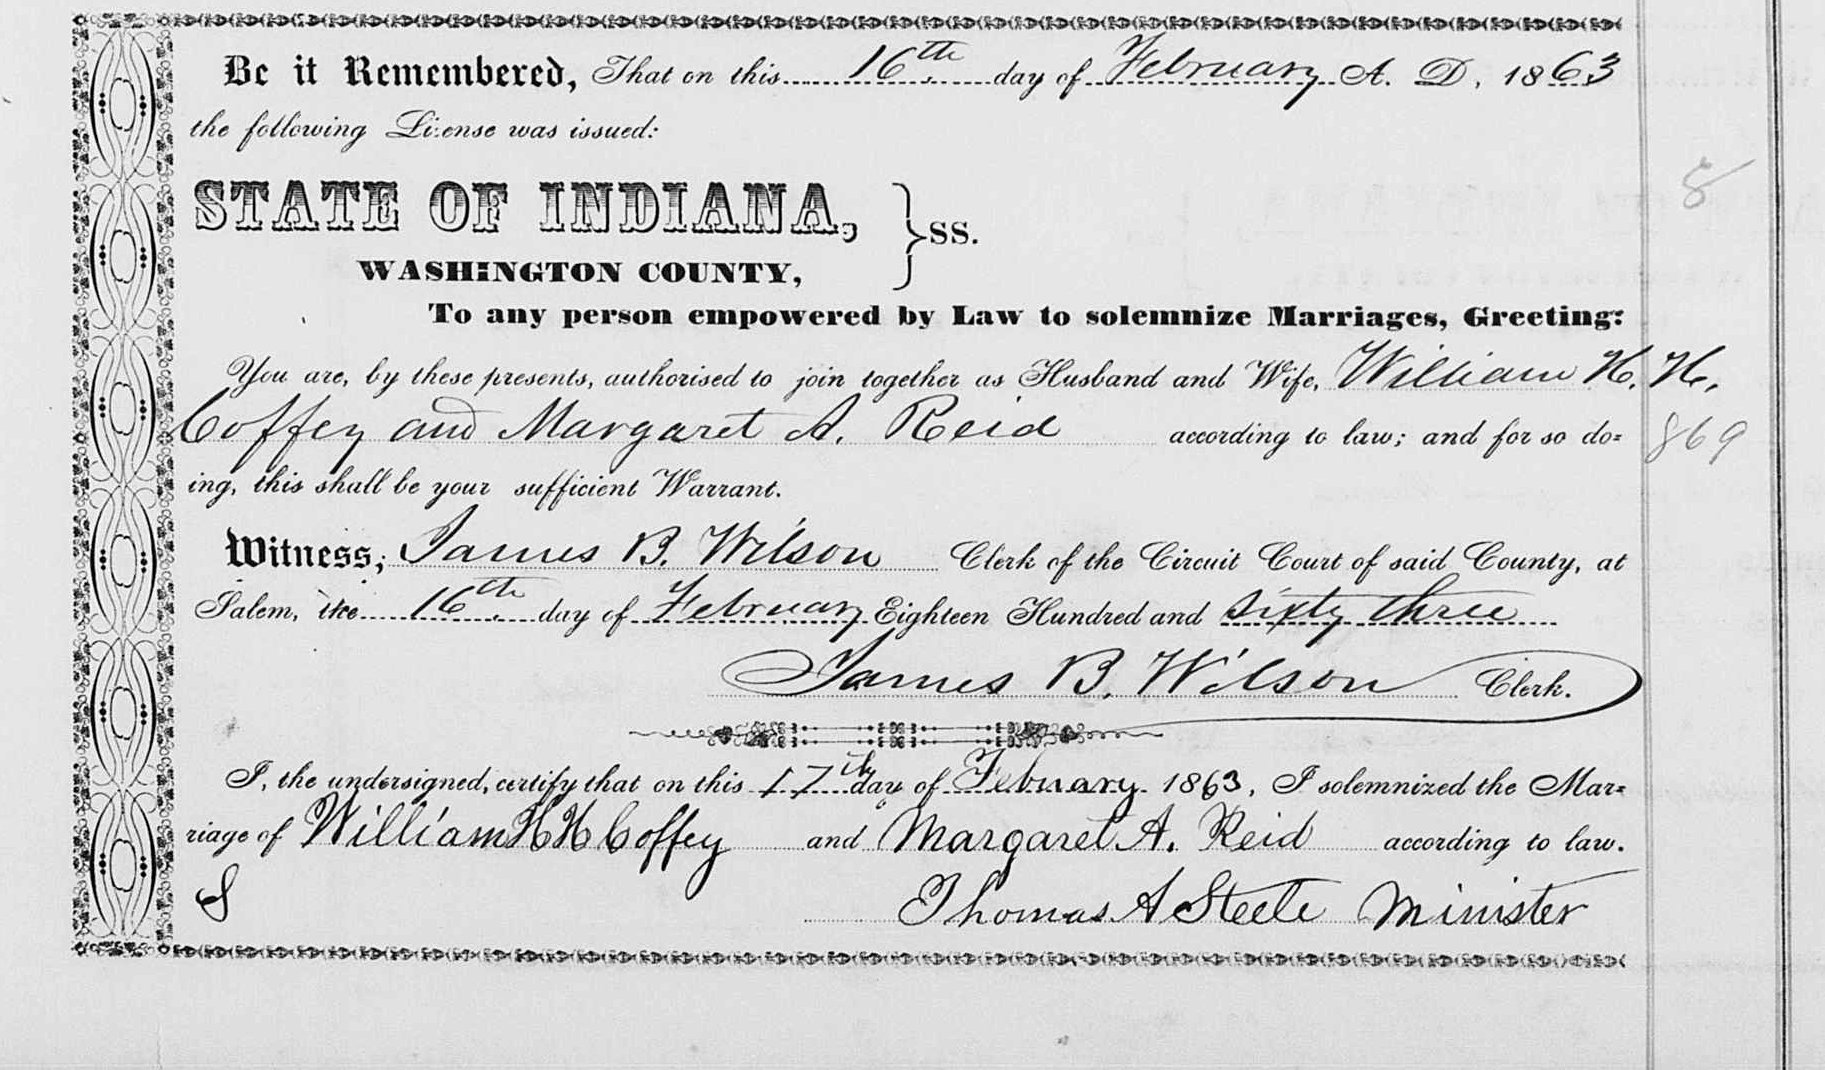 Be it Remembered, That on this 16th. day of February A. D. 1863
the following License was issued:
8
STATE OF INDIANA,
WASHINGTON COUNTY, } SS.
To any person empowered by Law to solemnize Marriages, Greeting:
You are, by these presents, authorised to join together as Husband and Wife, William H. H.
Coffey and Margaret A. Reid according to law; and for so do=
869
ing, this shall be your sufficient Warrant.
Witness, James B. Wilson Clerk of the Circuit Court of said County, at
Salem, the 16th. day of February Eighteen Hundred and sixty three
James B. Wilson Clerk.
I, the undersigned, certify that on this 17th day of February 1863, I solemnized the Mar=
riage of William H H Coffey and Margaret A. Reid according to law.
Thomas A Steele Minister